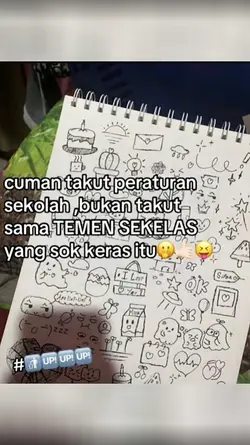 cuman takut peraturan
sekolah ,bukan takut
sama TEMEN SEKELAS
yang sok keras itu🤭👈🏻😝
#⬆️UP!UP!UP!
OK
zzz